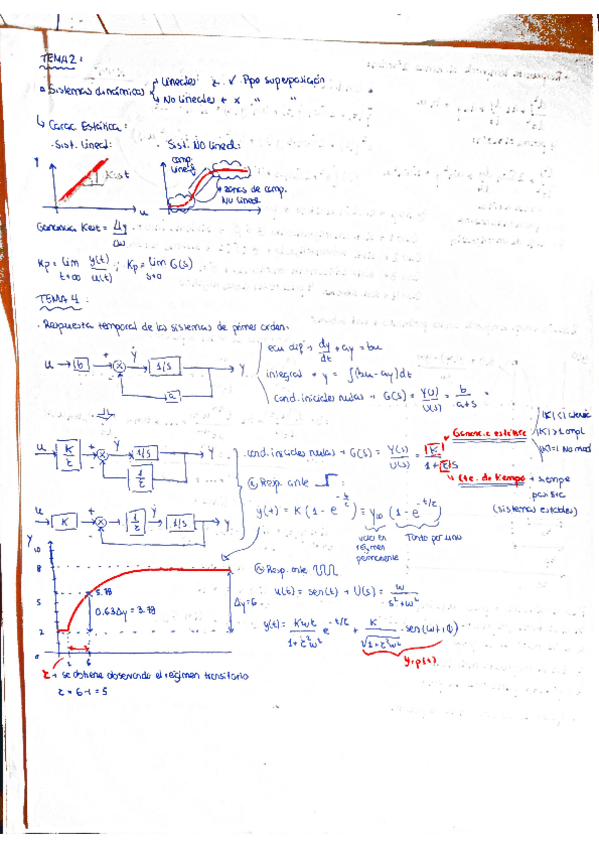 TEMA 2:
• Sistemas dinámicos
Lineales: → ✓ Ppo superposición
No lineales → x " "
↳ Carac. Estática:
· Sist. Lineal:
Sist. NO lineal:
comp. lineal
Kest
→ zonas de comp. No lineal
u
Ganancia Kest = Δy/Δu
Kp = lim t→∞ y(t)/u(t); Kp = lim s→0 G(s)
TEMA 4:
· Respuesta temporal de los sistemas de primer orden.
u → b → + x - ẏ → 1/s → y
a
ecu dif → dy/dt + ay = bu
integral → y = ∫(bu - ay)dt
cond. iniciales nulas → G(s) = Y(s)/U(s) = b/(a+s)
u → K/τ → + x - ẏ → 1/s → y
1/τ
cond. iniciales nulas → G(s) = Y(s)/U(s) = K/(1+τs)
Ganancia estática
|K|<1
|K|>1 ampl
|K|=1 No mod
Cte. de tiempo → siempre positiva
(sistemas estables)
Resp. ante
y(t) = K(1 - e^-t/τ) = y∞ (1 - e^-t/τ)
valor en régimen permanente
Tanto por uno
u → K → + x - → 1/τ → ẏ → 1/s → y
y
10
8
5
2
0
5.78
0.63Δy = 3.78
Δy = 6
1 6
Resp. ante
u(t) = sen(t) → U(s) = w/(s²+w²)
y(t) = Kwτ/(1+τ²w²) e^-t/τ + K/√(1+τ²w²) · sen(wt+φ)
yrp(t)
τ → se obtiene observando el régimen transitorio
τ = 6-1 = 5